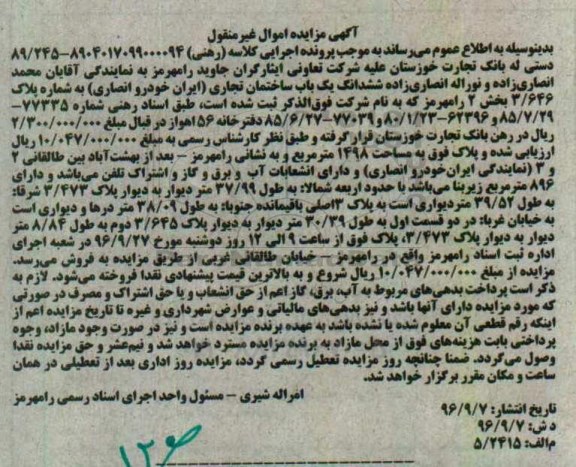 آگهی مزایده اموال غیرمنقول
بدینوسیله به اطلاع عموم می‌رساند به موجب پرونده اجرایی کلاسه (رهنی) ۸۹۰۴۰۱۷۰۹۹۰۰۰۰۹۴-۸۹/۲۴۵
دستی له بانک تجارت خوزستان علیه شرکت تعاونی ایثارگران جاوید رامهرمز به نمایندگی آقایان محمد
انصاری‌زاده و نوراله انصاری‌زاده ششدانگ یک باب ساختمان تجاری (ایران خودرو انصاری) به شماره پلاک
۳/۶۴۶ بخش ۲ رامهرمز که به نام شرکت فوق‌الذکر ثبت شده است، طبق اسناد رهنی شماره ۷۷۳۳۵-
۸۵/۷/۲۹و ۶۲۳۹۶-۸۰/۱/۲۳و ۷۷۰۳۹-۸۵/۶/۲۷ دفترخانه ۵۶اهواز در قبال مبلغ ۲/۳۰۰/۰۰۰/۰۰۰
ریال در رهن بانک تجارت خوزستان قرار گرفته و طبق نظر کارشناس رسمی به مبلغ ۱۰/۰۴۷/۰۰۰/۰۰۰ ریال
ارزیابی شده و پلاک فوق به مساحت ۱۴۹۸ مترمربع و به نشانی رامهرمز - بعد از بهشت‌آباد بین طالقانی ۲
و ۳ (نمایندگی ایران‌خودرو انصاری) و دارای انشعابات آب و برق و گاز و اشتراک تلفن می‌باشد و دارای
۸۹۶ مترمربع زیربنا می‌باشد با حدود اربعه شمالا: به طول ۳۷/۹۹ متر دیوار به دیوار پلاک ۳/۴۷۳ شرقا:
به طول ۳۹/۵۲ متردیواری است به پلاک ۳اصلی باقیمانده جنوبا: به طول ۳۸/۰۹ متر درها و دیواری است
به خیابان غربا: در دو قسمت اول به طول ۳۰/۳۹ متر دیوار به دیوار پلاک ۳/۶۴۵ دوم به طول ۸/۸۴ متر
دیوار به دیوار پلاک ۳/۴۷۳، پلاک فوق از ساعت ۹ الی ۱۲ روز دوشنبه مورخ ۹۶/۹/۲۷ در شعبه اجرای
اداره ثبت اسناد رامهرمز واقع در رامهرمز - خیابان طالقانی غربی از طریق مزایده به فروش می‌رسد.
مزایده از مبلغ ۱۰/۰۴۷/۰۰۰/۰۰۰ ریال شروع و به بالاترین قیمت پیشنهادی نقدا فروخته می‌شود. لازم به
ذکر است پرداخت بدهی‌های مربوط به آب، برق، گاز اعم از حق انشعاب و یا حق اشتراک و مصرف در صورتی
که مورد مزایده دارای آنها باشد و نیز بدهی‌های مالیاتی و عوارض شهرداری و غیره تا تاریخ مزایده اعم از
اینکه رقم قطعی آن معلوم شده یا نشده باشد به عهده برنده مزایده است و نیز در صورت وجود مازاد، وجوه
پرداختی بابت هزینه‌های فوق از محل مازاد به برنده مزایده مسترد خواهد شد و نیم‌عشر و حق مزایده نقدا
وصول می‌گردد. ضمنا چنانچه روز مزایده تعطیل رسمی گردد، مزایده روز اداری بعد از تعطیلی در همان
ساعت و مکان مقرر برگزار خواهد شد.
امراله شیری - مسئول واحد اجرای اسناد رسمی رامهرمز
تاریخ انتشار: ۹۶/۹/۷
د ش: ۹۶/۹/۷
م‌الف: ۵/۲۴۱۵